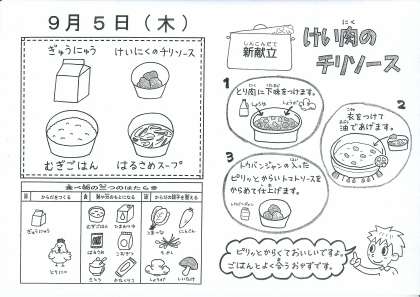 9月5日(木)
ぎゅうにゅう
けいにくのチリソース
むぎごはん
はるさめスープ
食べ物の三つのはたらき
赤 からだをつくる
黄 熱や力のもとになる
緑 からだの調子を整える
ぎゅうにゅう
とりにく
むぎごはん
さとう
にんじん
しょうが
しいたけ
しんこんだて
新献立
にく
けい肉の
チリソース
1
とり肉に下味をつけます。
しょうゆ
しょうが
2
衣をつけて
油であげます。
3
トウバンジャンの入った
ピリッとからいトマトソースを
からめて仕上げます。
ピリッとからくておいしいですよ。
ごはんとよく合うおかずです。